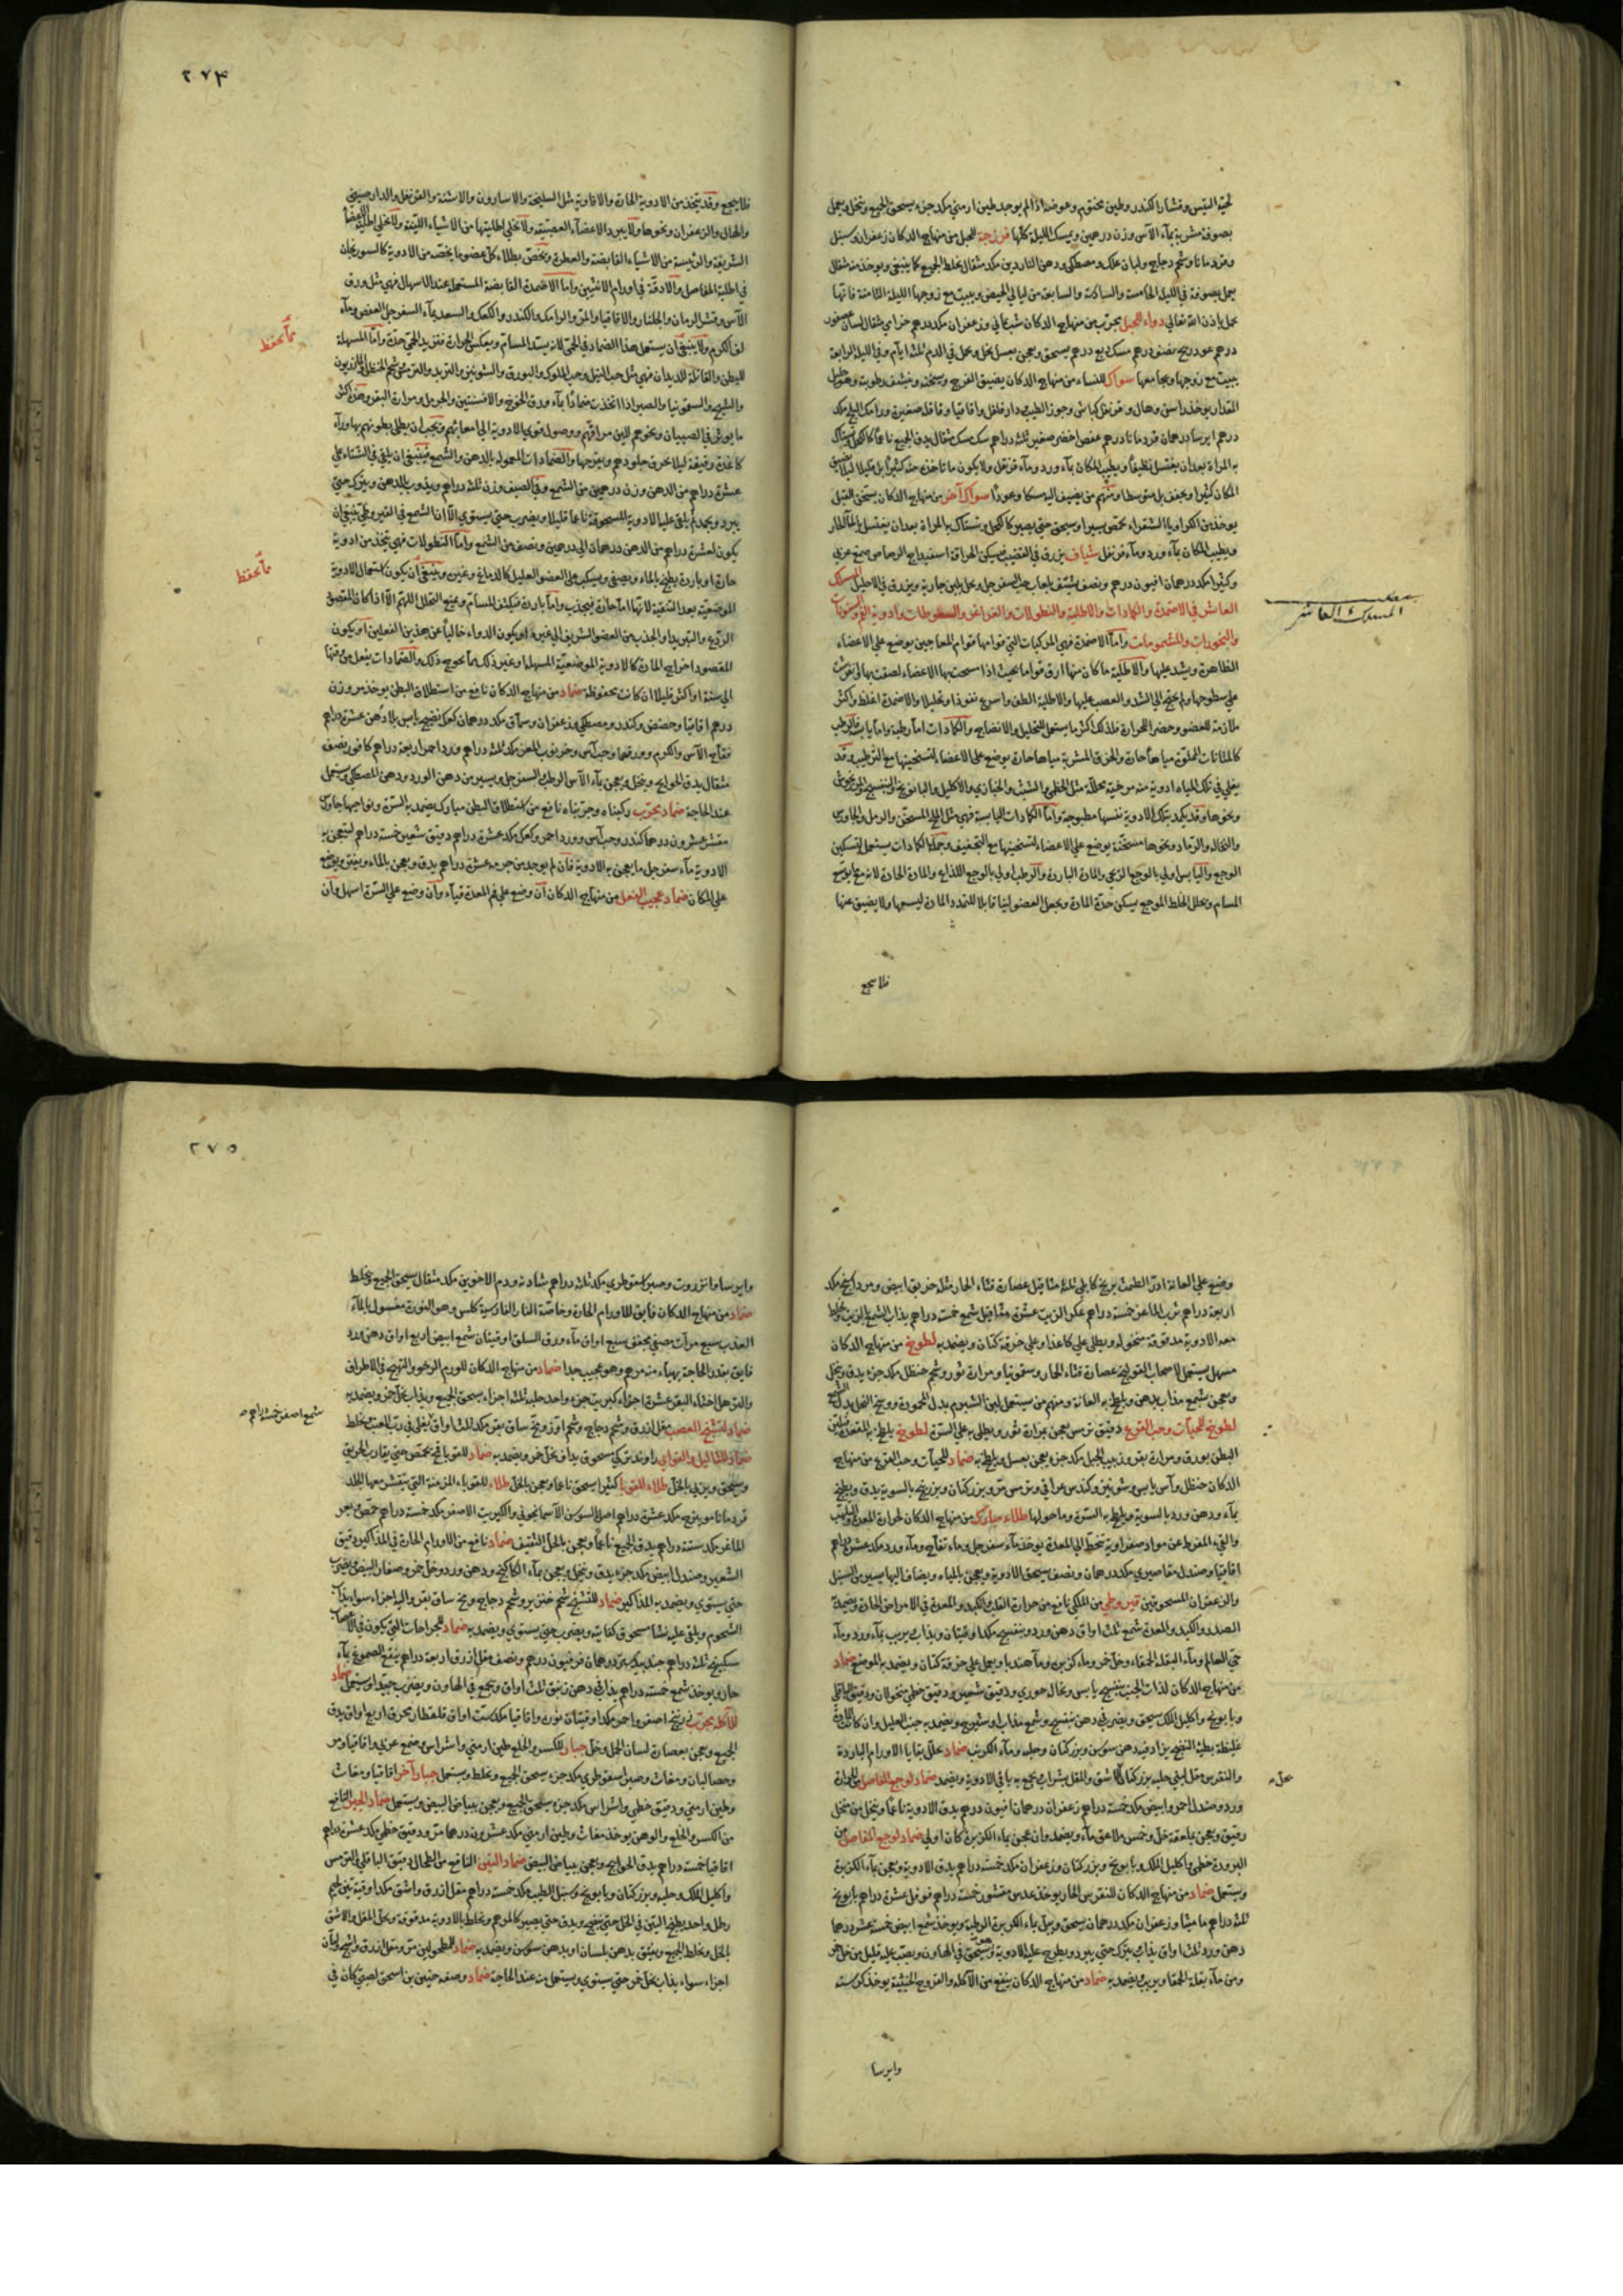 لحية التيس وقشار الكندر وطين مختوم وعوضه اذا لم يوجد طين ارمني مكد جزء يسحق الجميع وينخل ويحمل
بصوفة مشربة بمآء الآس وزن درهمين ويمسك الليلة كلّها فرزجة للحبل من منهاج الدكان زعفران وسنبل
وقردمانا وشحم دجاج ولبان علك ومصطكى ودهن الناردين مكد مثقال يخلط الجميع كما ينبغي ويوخذ منه مثقال
يحمل بصوفة في الليلة الخامسة والسادسة والسابعة من ليالي الحيض ويبيت مع زوجها الليلة الثامنة فانّها
تحمل باذن الله تعالي دواء للحبل مجرّب من منهاج الدكان شبّ يماني وزعفران مكد درهم خزامي مثقال لسان عصفور
درهم عود ريح نصف درهم مسك ربع درهم يسحق ويعجن بعسل نحل ويحمل في الدم ثلثة ايام وفي الليلة الرابعة
يبيت مع زوجها ويجامعها سواك للنساء من منهاج الدكان يضيق الفرج ويسخنه وينشف رطوبته وهو جليل
المقدار يوخذ راسن وهال وقرنفل كباش وجوز الطيب دار فلفل واقاقيا وقاقلة صغيرة ورامك البلح مكد
درهم ايرسا درهمان قردمانا درهم عفص اخضر صغير ثلثة دراهم سك مسك مثقال يدق الجميع ناعمًا كالكحل وتستاك
به المراة بعد ان يغتسل نظيفًا ويطيب المكان بمآء ورد ومآء قرنفل ولا يكون ما تاخذ منه كثيرًا بل قليلا ليلا يضيق
المكان كثيرا ويجفف بل متوسطا ومنهم من يضيف اليه مسكا وعودًا سواك آخر من منهاج الدكان يسخن القبل
يوخذ من الكراويا الشقراء محمّص يسيرا ويسحق حتي يصير كالكحل وتستاك به المراة بعد ان يغتسل بالمآ الحار
ويطيب المكان بمآء ورد ومآء قرنفل شياف يزرق في القضيب يسكن الحراقة اسفيداج الرصاص صمغ عربي
وكثيرا مكد درهمان افيون درهم ونصف يشيّف بلعاب حب السفرجل ويحل بلبن جارية ويزرق في الاحليل المسلك
العاشر في الاضمدة والكمادات والاطلية والنطولات والغراغر والسعوطات وادوية الفم والسنونات
والبخورات والمشمومات وامّا الاضمدة فهي المركبات التي قوامها قوام المعاجين يوضع علي الاعضاء
الظاهرة ويشد عليها والاطلية ما كان منها ارق قواما بحيث اذا مسحت بها الاعضاء لصقت بها
علي سطوحها ولم يحتج الي الشد والعصب عليها والاطلية الطف واسرع نفوذا وتحليلا والاضمدة اغلظ واكثر
ملازمة للعضو وحصر الحرارة فلذلك اكثر ما يستعمل للتحليل والانضاج والكمادات امّا رطبة وامّا يابسة فالرطب
كالمثانات المملوّة مياهًا حارة والخرق المشربة مياها حارة يوضع علي الاعضاء لتسخينها مع الترطيب وقد
يغلي في تلك المياه ادوية مرخية محللة مثل الخطمي والشبت والخبازي والاكليل والبابونج والبنفسج
ونحوها وقد يكمد بتلك الادوية نفسها مطبوخة وامّا الكمادات اليابسة فهي مثل الملح المسخّن والرمل والجاورس
والنخالة والرماد ونحوها مسخّنة يوضع علي الاعضاء لتسخينها مع التجفيف وجملة الكمادات يستعمل لتسكين
الوجع واليابس اولي بالوجع الريحي والمادة الباردة والرطب اولي بالوجع اللذاع والمادة الحادة لانه مع ما يوسّع
المسام ويحلل الخلط الموجع يسكن حدّة المادة ويجعل العضو لينا قابلا للتمدد المادة ليسعها ولا يضيق عنها
فلا يوجع
المسلك العاشر
٢٧٤
فلا يوجع وقد يتخذ من الادوية الحارة والافاوية مثل السليخة والاسارون والاشنة والقرنفل والدارصيني
والهال والزعفران ونحوها ولا يبرد الاعضآء العصبيّة ولا تخلي اطليتها من الاشياء الليّنة ولا تخلي اطلية الاعضآ
الشريفة والرئيسة من الاشياء القابضة والعطرة ويخصّ بطلاء كل عضو ما يخصّه من الادوية كالسورنجان
في اطلية المفاصل والادقّة في اورام الانثيين وامّا الاضمدة القابضة المستعملة عند الاسهال فهي مثل ورق
الآس وقشر الرمان والجلنار والاقاقيا والمرّ والرامك والكندر والكعك والسعد بمآء السفرجل العفص ومآء
لفّ الكرم ولا ينبغي ان يستعمل هذا الضماد في الحمى لانه يسدّ المسامّ ويعكس الحرارة فتزيد الحمّي حدّة وامّا المسهلة
للبطن والقاتلة للديدان فهي مثل حب النيل وحب الملوك والبورق والشونيز والتربد والترمس وشحم الحنظل والمازريون
والشيح والسقمونيا والصبر اذا اتخذت ضمادًا بمآء ورق الخوخ والافسنتين والحرمل ومرارة البقر وهذه اكثر
ما يوثر في الصبيان ونحوهم للين مراقهم ووصول قوي الادوية الي امعائهم ويجب ان يطلي بطونهم بها ورآء
كاغدة رقيقة ليلا يحرق جلودهم ويقرحها والضمادات المعمولة بالدهن والشمع فينبغي ان يلقي في الشتاء علي
عشرة دراهم من الدهن وزن درهمين من الشمع وفي الصيف وزن ثلثة دراهم ويذوب بالدهن ويترك حتي
يبرد ويجمد ثم يلقي عليه الادوية المسحوقة ناعما قليلا قليلا ويضرب حتي يستوي الّا ان الشمع في القيروطي ينبغي ان
يكون لعشرة دراهم من الدهن درهمان الي درهمين ونصف من الشمع وامّا النطولات فهي يتخذ من ادوية
حارة او باردة يطبخ بالماء ويصفي ويسكب علي العضو العليل كالدماغ وغيره وينبغي ان يكون استعمال الادوية
الموضعيّة بعد التنقية لانّها امّا حارة فيجذب وامّا باردة فيكثف المسام ويمنع التحلل اللهمّ الّا اذا كان المقصود
الردع والتبريد والجذب من العضو الشريف الي غيره او يكون الدواء خالياً عن هذين الفعلين او يكون
المقصود اخراج المادة كالادوية الموضعيّة المسهلة او غير ذلك مما يحوج ذلك والضمادات يفعل من وقتها
الي سنة او اكثر قليلا ان كانت محفوظة ضماد من منهاج الدكان نافع من استطلاق البطن يوخذ مر وزن
درهم اقاقيا وحضض وكندر ومصطكي وزعفران وسماق مكد درهمان كعك نضيج يابس بلا دهن عشرة دراهم
فقاح الآس والكرم وورقهما وحب آس وخرنوب المعز مكد ثلثة دراهم ورد احمر اربعة دراهم كافور نصف
مثقال يدق الحوايج وينخل ويعجن بمآء الآس الرطب او السفرجل ويسير من دهن الورد ودهن المصطكي ويستعمل
عند الحاجة ضماد مجرّب ركبناه وجرّبناه نافع من استطلاق البطن مبارك يضمد به السرّة ونواحيها جاورس
مقشر عشرون درهما كندر وحب آس وورد احمر وكعك مكد عشرة دراهم دقيق شعير خمسة دراهم
الادوية مآء سفرجل ما يعجن به الادوية فان لم يوجد من جرمه عشرة دراهم يدق ويعجن بالماء ويفتر ويوضع
علي المكان ضماد عجيب الفعل من منهاج الدكان ان وضع علي فم المعدة قيّأء وان وضع علي السرّة اسهل وان
ممّا يحفظ
ممّا يحفظ
وضع علي العانة ادرّ الطمث برنج كابلي ثلثة مثاقيل عصارة قثاء الحمار مثله خربق ابيض ومرداسنج مكد
اربعة دراهم ثرب الماعز خمسة دراهم عكر الزيت عشرة مثاقيل شمع خمسة دراهم يذاب الشمع بالزيت ويخلط
معه الادوية مدقوقة منخولة ويطلي علي كاغد او علي خرقة كتان ويضمد به لطوخ من منهاج الدكان
مسهل يستعمل لاصحاب القولنج عصارة قثاء الحمار وسقمونيا ومرارة ثور وشحم حنظل مكد جزء يدق وينخل
ويعجن شمع مذاب بدهن ويلطخ به العانة ومنهم من يستعمل لبن الشبرم بدل المحمودة ووسخ النحل بدل الشمع
لطوخ للحيّات وحب القرع دقيق ترمس يعجن بمرارة ثور ويطلي به علي السرّة لطوخ يلطخ به المقعدة فيلين
البطن بورق ومرارة بقر وزبيب الجبل مكد جزء يعجن بعسل ويلطخ به ضماد للحيّات وحب القرع من منهاج
الدكان حنظل وآس يابس وشونيز وكندس عراقي وترمس مرّ وبزر كتان وبزرنج بالسوية يدق ويطبخ
بمآء ودهن ورد بالسوية ويلطخ به السرّة وما حولها طلاء مبارك من منهاج الدكان لحرارة المعدة واللهيب
والقيء المفرط عن مواد صفراوية تتحلّب الي المعدة يوخذ مآء سفرجل وماء تفاح ومآء ورد مكد عشرة دراهم
اقاقيا وصندل مقاصيري مكد درهمان ونصف يسحق الادوية ويعجن بالمياه ويضاف اليها يسير من السنبل
والزعفران المسحوقين قيروطي من الملكي نافع من حرارة القلب والكبد والمعدة في الامراض الحارة ويضمد به
الصدر والكبد والمعدة شمع ثلث اواق دهن ورد وبنفسج مكد اوقيتان ويذاب يربب بمآء ورد ومآء
حيّ العالم ومآء البقلة الحمقاء وخل خمر وماء كزبرة ومآء هندبا ويعمل علي خرقة كتان ويضمد به الموضع ضماد
من منهاج الدكان لذات الجنب بنفسج يابس ونخالة حوري ودقيق شعير ودقيق خطمي منخولان ودقيق الباقلي
وبابونج واكليل الملك يسحق ويضرب في دهن بنفسج وشمع مذاب او شيرج ويضمد به جنب العليل وان كانت المادة
غليظة بطيئة النضج يزاد فيه دهن سوسن وبزر كتان وحلبة ومآء الكرنب ضماد محلل بقايا الاورام الباردة
والنقرس مقل ليني حلبة بزر كتان الاشق والمقل بشراب يجمع به باقي الادوية ويضمد ضماد لوجع المفاصل من الحرارة
ورد وصندل احمر وابيض مكد خمسة دراهم زعفران درهمان افيون درهم يدق الادوية ناعمًا وينخل من منخل
رقيق ويعجن بملعقة خل وخمس ملاعق مآء ويضمد وان عجن بماء الكزبرة كان اولي ضماد لوجع المفاصل من
البرودة خطمي واكليل الملك وبابونج وبزر كتان وزعفران مكد خمسة دراهم يدق الادوية ويعجن بمآء الكزبرة
ويستعمل ضماد من منهاج الدكان للنقرس الحار يوخذ عدس مقشور خمسة دراهم فوفل عشرة دراهم بابونج
ثلثة دراهم ماميثا وزعفران مكد درهمان يسحق ويبل بماء الكزبرة الرطبة ويوخذ شمع ابيض خمسة عشر درهما
دهن ورد ثلث اواق يذاب يترك حتي يبرد ويطرح عليه الادوية ويسحق في الهاون ويصب عليه قليل من خل خمر
ومن مآء بقلة الحمقا ويربب ويضمد به ضماد من منهاج الدكان ينفع من الآكلة والقروح الخبيثة يوخذ كرسنة
وايرسا
٢٧٥
وايرسا وانزروت وصبر اسقوطري مكد ثلثة دراهم شادنة ودم الاخوين مكد مثقال يسحق الجميع ويخلط
ضماد من منهاج الدكان فايق للاورام الحارة وخاصّة النار الفارسية كلس وهو النورة مغسول بالمآء
العذب سبع مرآت مصفي مجفف سبع اواق مآء ورق السلق اوقيتان شمع ابيض اربع اواق دهن ورد
فايق بقدر الحاجة يهيأء منه مرهم وهو عجيب جدا ضماد من منهاج الدكان للورم الرخو والتهيج في الاطراف
والترهل اخثاء البقر عشرة اجزاء كبريت جزء واحد حلبة ثلثة اجزاء يسحق الجميع ويذاب بخل خمر ويضمد به
ضماد لتشنّج العصب مقل ازرق وشحم دجاج وشحم اوز ومخّ ساق بقر مكد ثلث اواق يغلي في ربّ العنب ويخلط
ضماد للثآليل والقوابي راوند تركي مسحوق يداف بخل خمر ويضمد به ضماد للقوباء قمح محمّص حتي يقارب الحريق
ويسحق ويربي بالخل طلاء للقوباء كثيرا يسحق ناعما ويعجن بالخل طلاء للقوباء المزمنة التي يتقشر معها الجلد
قردمانا موينرج مكد عشرة دراهم اصل السوسن الآسمانجوني والكبريت الاصفر مكد خمسة دراهم حمّص وبعر
الماعز مكد ستة دراهم يدق الجميع ناعمًا ويعجن بالخل الثقيف ضماد نافع من الاورام الحارة في المذاكير دقيق
الشعير وصندل ابيض مكد جزء يدق وينخل ويعجن بمآء الكاكنج ودهن ورد وخل خمر وصفار البيض يضرب
حتي يستوي ويضمد به المذاكير ضماد للتشنّج شحم خنزير وشحم دجاج ومخ ساق بقر والية اجزاء سواء يذاب
الشحوم ويلقي عليه نشا مسحوق كفايته ويضرب حتي يستوي ويضمد به ضماد للجراحات التي يكون في الاعصاب
سكبينج ثلثة دراهم جندبيدستر درهمان فرفيون درهم ونصف مقل ازرق اربعة دراهم ينقع الصموغ بمآء
حار ويوخذ شمع خمسة دراهم يذاب في دهن زنبق ثلث اواق ويجمع في الهاون ويضرب جيّدا ويستعمل ضماد
للآكلة مجرّب زرنيخ اصفر واحمر مكد اوقيتان نورة واقاقيا مكد ست اواق قلقطار محرق اربع اواق يدق
الجميع ويعجن بعصارة لسان الحمل وخل جبار للكسر والخلع طين ارمني واشراس وصمغ عربي واقاقيا ومر
وحصا لبان ومغاث وصبر اسقوطري مكد جزء يسحق الجميع ويخلط ويستعمل جبار آخر اقاقيا ومغاث
وطين ارمني ودقيق خطمي واشراس مكد جزء يسحق الجميع ويعجن ببياض البيض ويستعمل ضماد الجبر النافع
من الكسر والخلع والوهن يوخذ مغاث وطين ارمني مكد عشرون درهما مرّ ودقيق خطمي مكد عشرة دراهم
اقاقيا خمسة دراهم يدق الحوايج ويعجن ببياض البيض ضماد التين النافع من الطحال دقيق الباقلي والترمس
واكليل الملك وحلبة وبزر كتان وبابونج وسنبل الطيب مكد خمسة دراهم مقل ازرق واشق مكد اوقية تين لحيم
رطل واحد يطبخ التين في الخل حتي ينضج ويدق حتي يصير كالمرهم ويخلط بالادوية مدقوقة ويحل المقل والاشق
بالخل ويخلط الجميع ويفتق بدهن بلسان او بدهن سوسن ويضمد به ضماد للطحول لبن مرّ ومقل ازرق واشج ولبان
اجزاء سواء يذاب بخل خمر حتي يستوي ويستعمل منه عند الحاجة ضماد وصفه حنين بن اسحق لصبيّ كان في
شمع اصفر خمسة دراهم